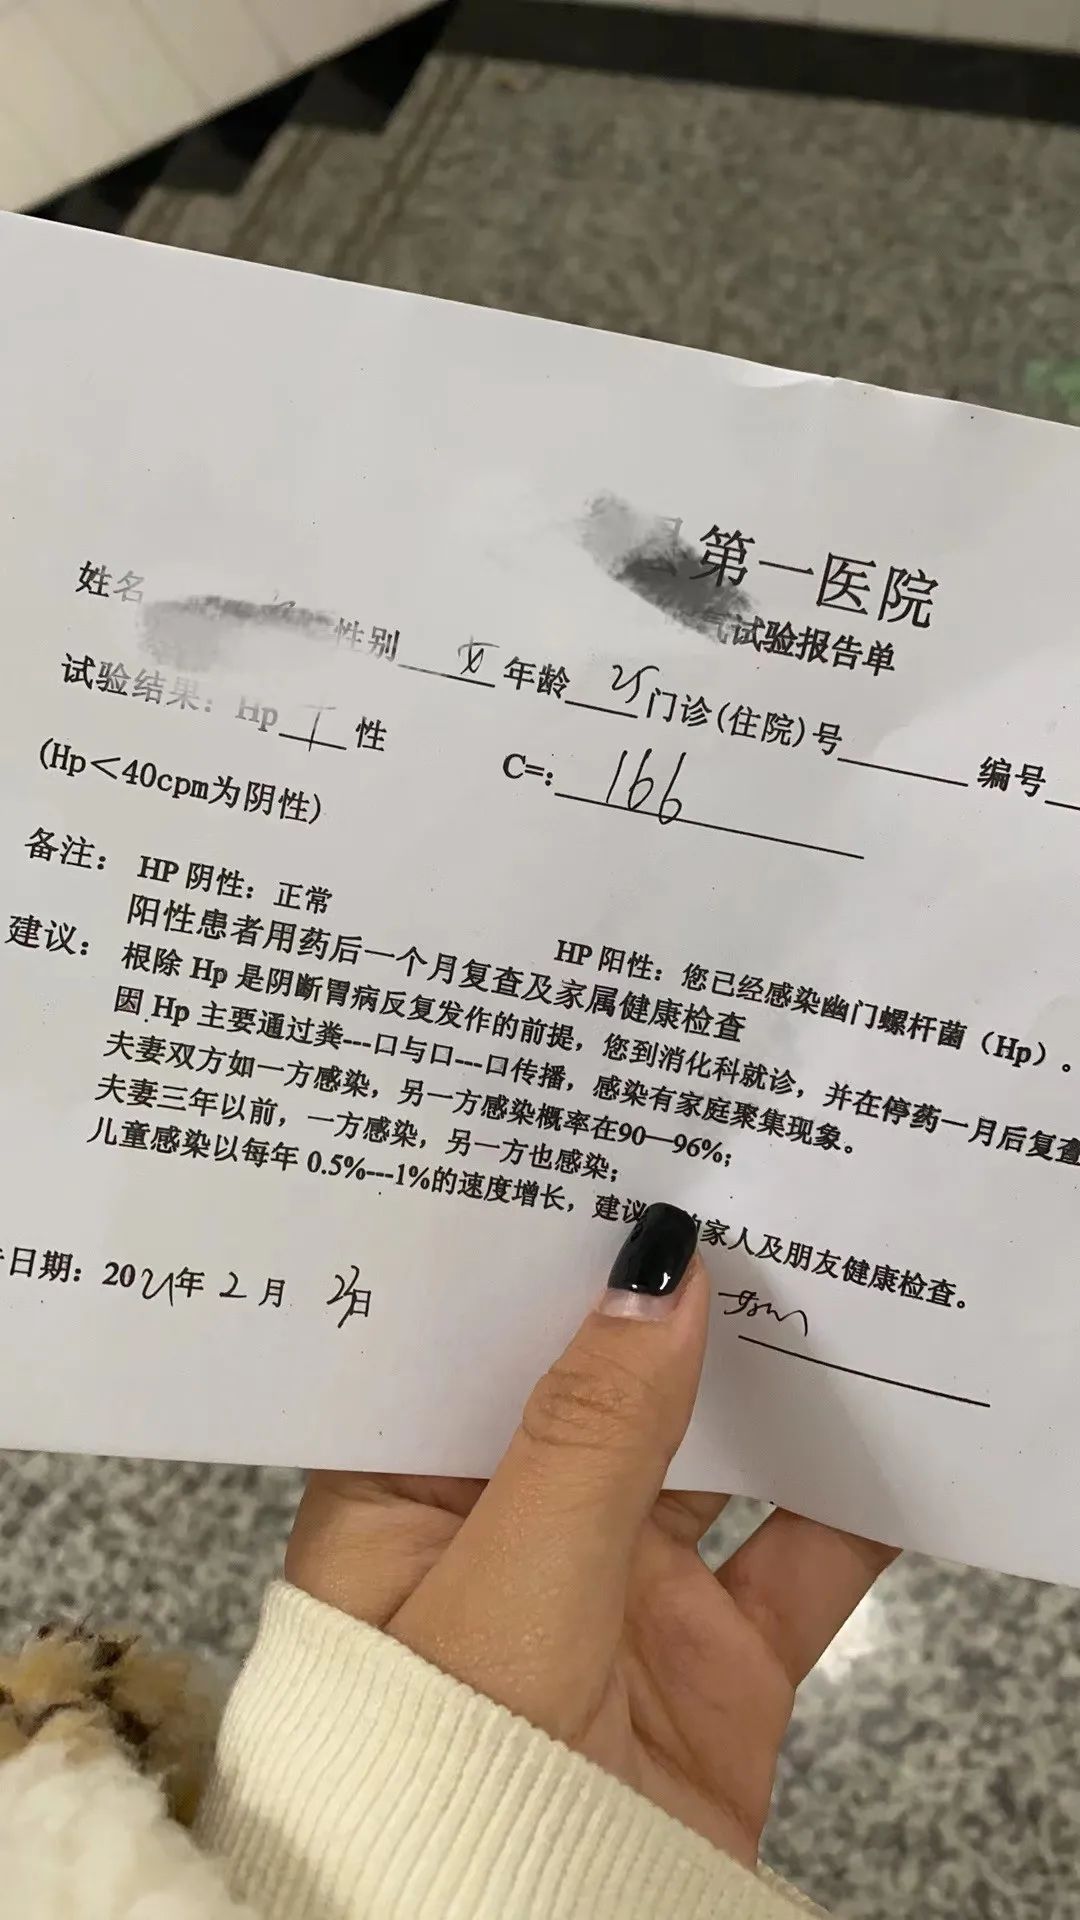 第一医院
气试验报告单
姓名 性别 女 年龄 25 门诊(住院)号 编号
试验结果：Hp 十 性 C=: 166
(Hp＜40cpm为阴性)
备注： HP 阴性：正常 HP 阳性：您已经感染幽门螺杆菌（Hp）。
阳性患者用药后一个月复查及家属健康检查
建议： 根除 Hp 是阴断胃病反复发作的前提，您到消化科就诊，并在停药一月后复查
因 Hp 主要通过粪---口与口---口传播，感染有家庭聚集现象。
夫妻双方如一方感染，另一方感染概率在90—96%；
夫妻三年以前，一方感染，另一方也感染；
儿童感染以每年 0.5%---1%的速度增长，建议 家人及朋友健康检查。
日期：2021年 2 月 日